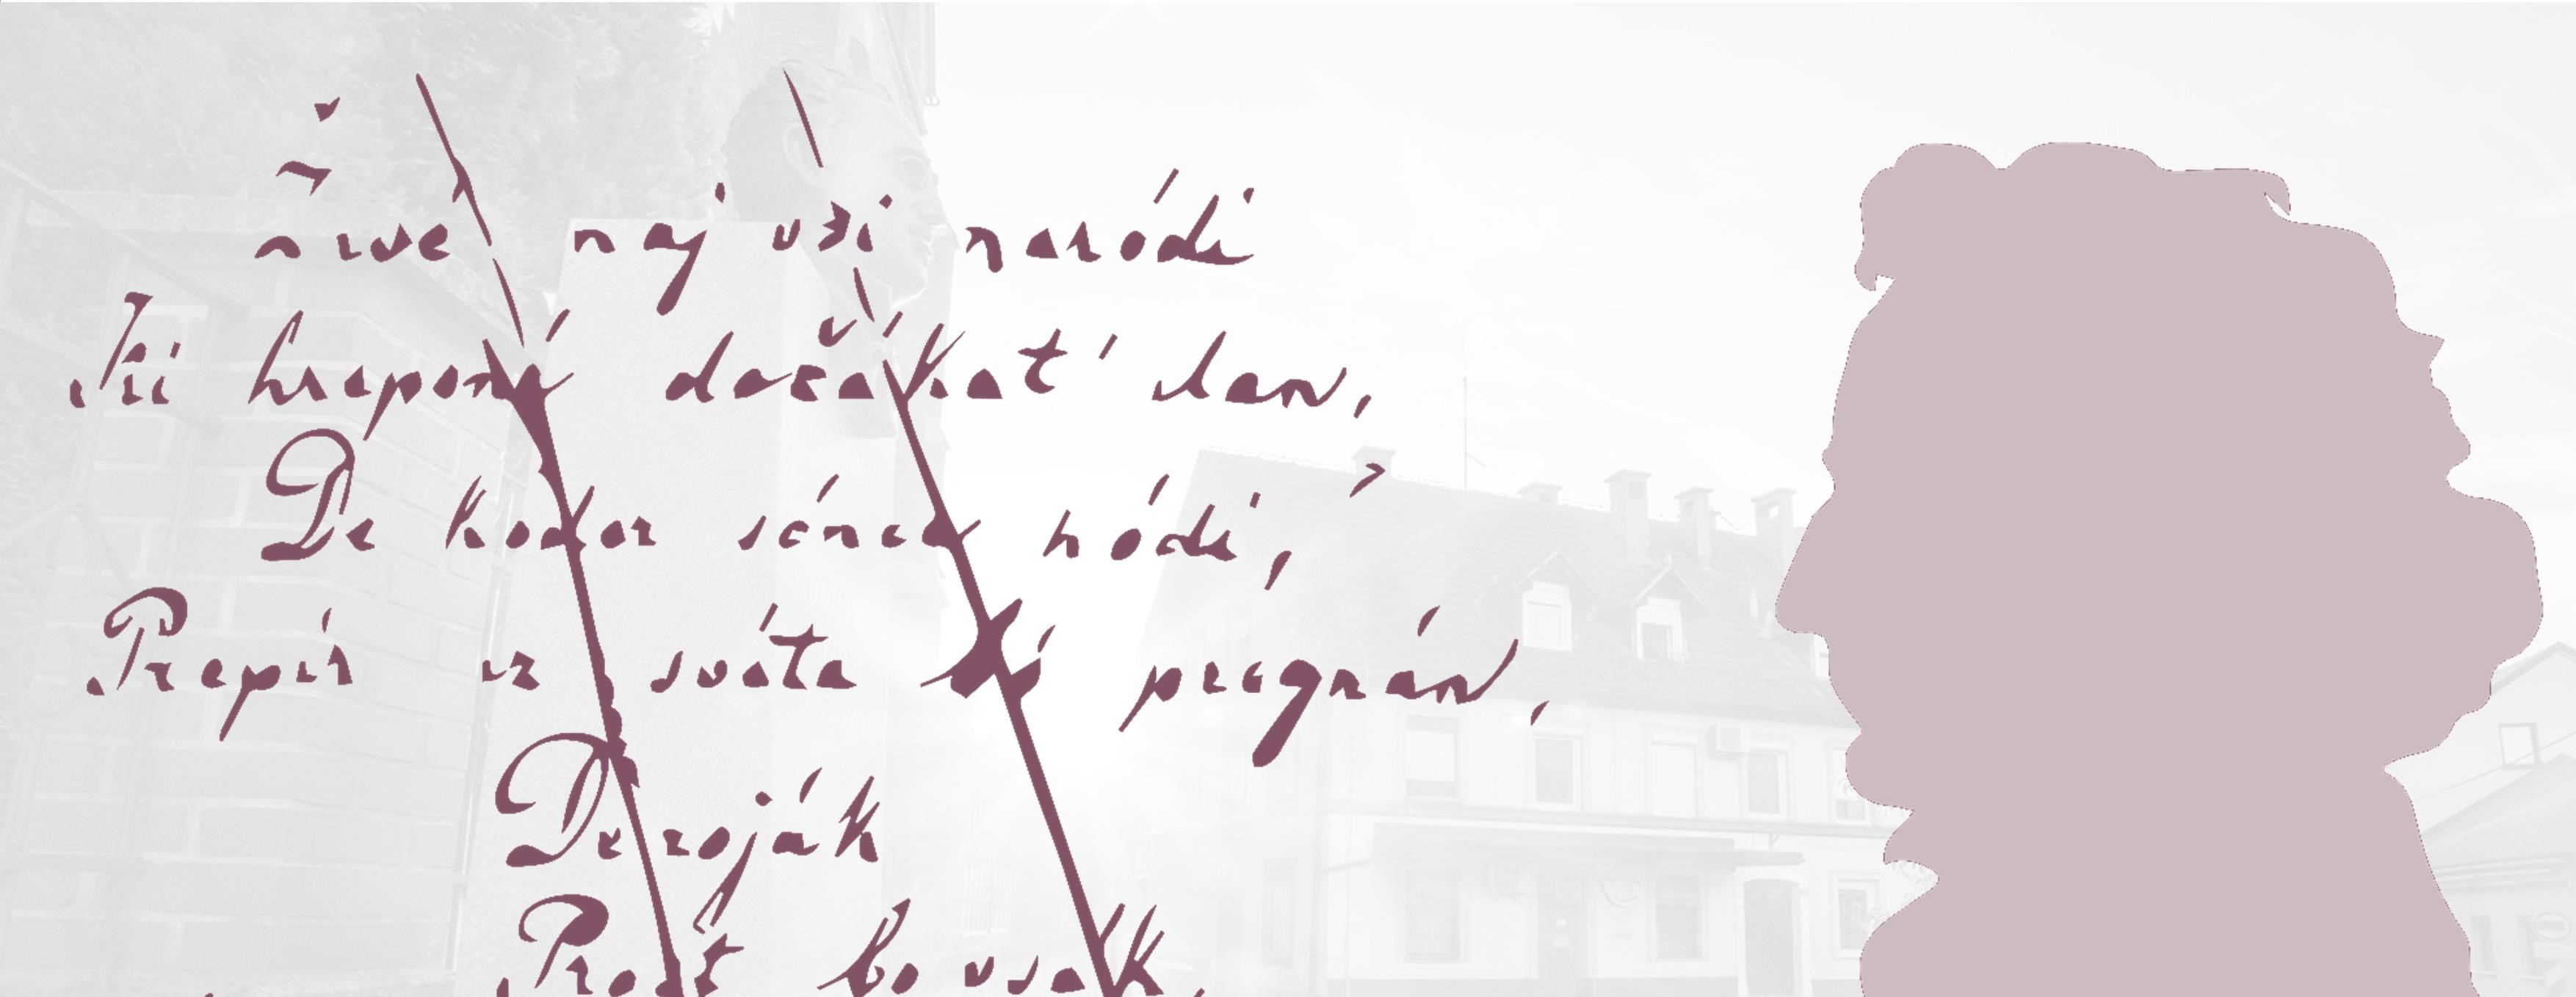 žive naj vsi naródi
Ki hrepené dočákat' dan,
De kodar sónce hódi,
Prepír iz svéta bó prégnán,
De roják
Prost bo vsak,